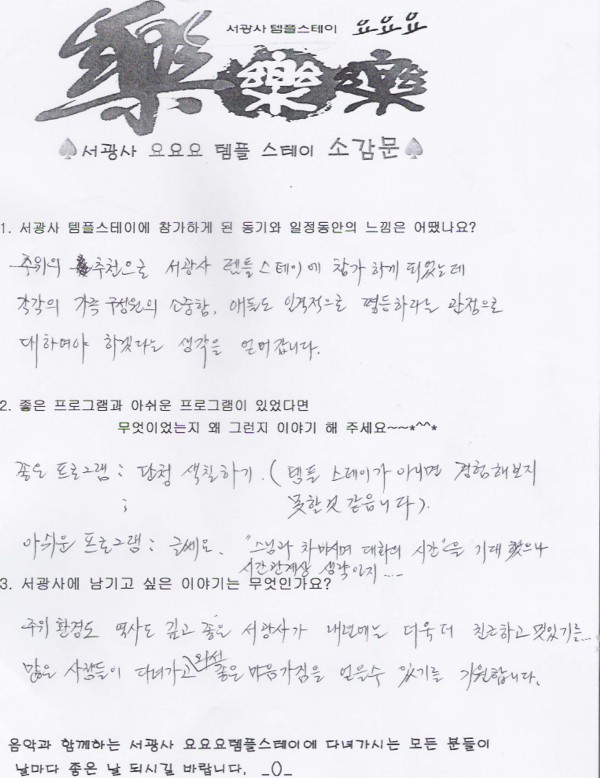 서광사 템플스테이 요요요
樂 樂 樂
♠서광사 요요요 템플 스테이 소감문♠
1. 서광사 템플스테이에 참가하게 된 동기와 일정동안의 느낌은 어땠나요?
주위의 추천으로 서광사 템플스테이에 참가하게 되었는데
각각의 가족 구성원의 소중함, 애들도 인격적으로 평등하라는 관점으로
대하여야 하겠다는 생각을 얻어갑니다.
2. 좋은 프로그램과 아쉬운 프로그램이 있었다면
무엇이었는지 왜 그런지 이야기 해 주세요~~*^^*
좋은 프로그램 : 단청 색칠하기. (템플 스테이가 아니면 경험해보지
; 못할것 같습니다).
아쉬운 프로그램 : 글쎄요. "스님과 차마시며 대화의 시간"을 기대 했으나
시간관계상 생략인지....
3. 서광사에 남기고 싶은 이야기는 무엇인가요?
주위 환경도 역사도 깊고 좋은 서광사가 내년에는 더욱 더 친근하고 멋있기를...
많은 사람들이 다녀가고 와서 좋은 마음가짐을 얻을수 있기를 기원합니다.
음악과 함께하는 서광사 요요요템플스테이에 다녀가시는 모든 분들이
날마다 좋은 날 되시길 바랍니다. _()_